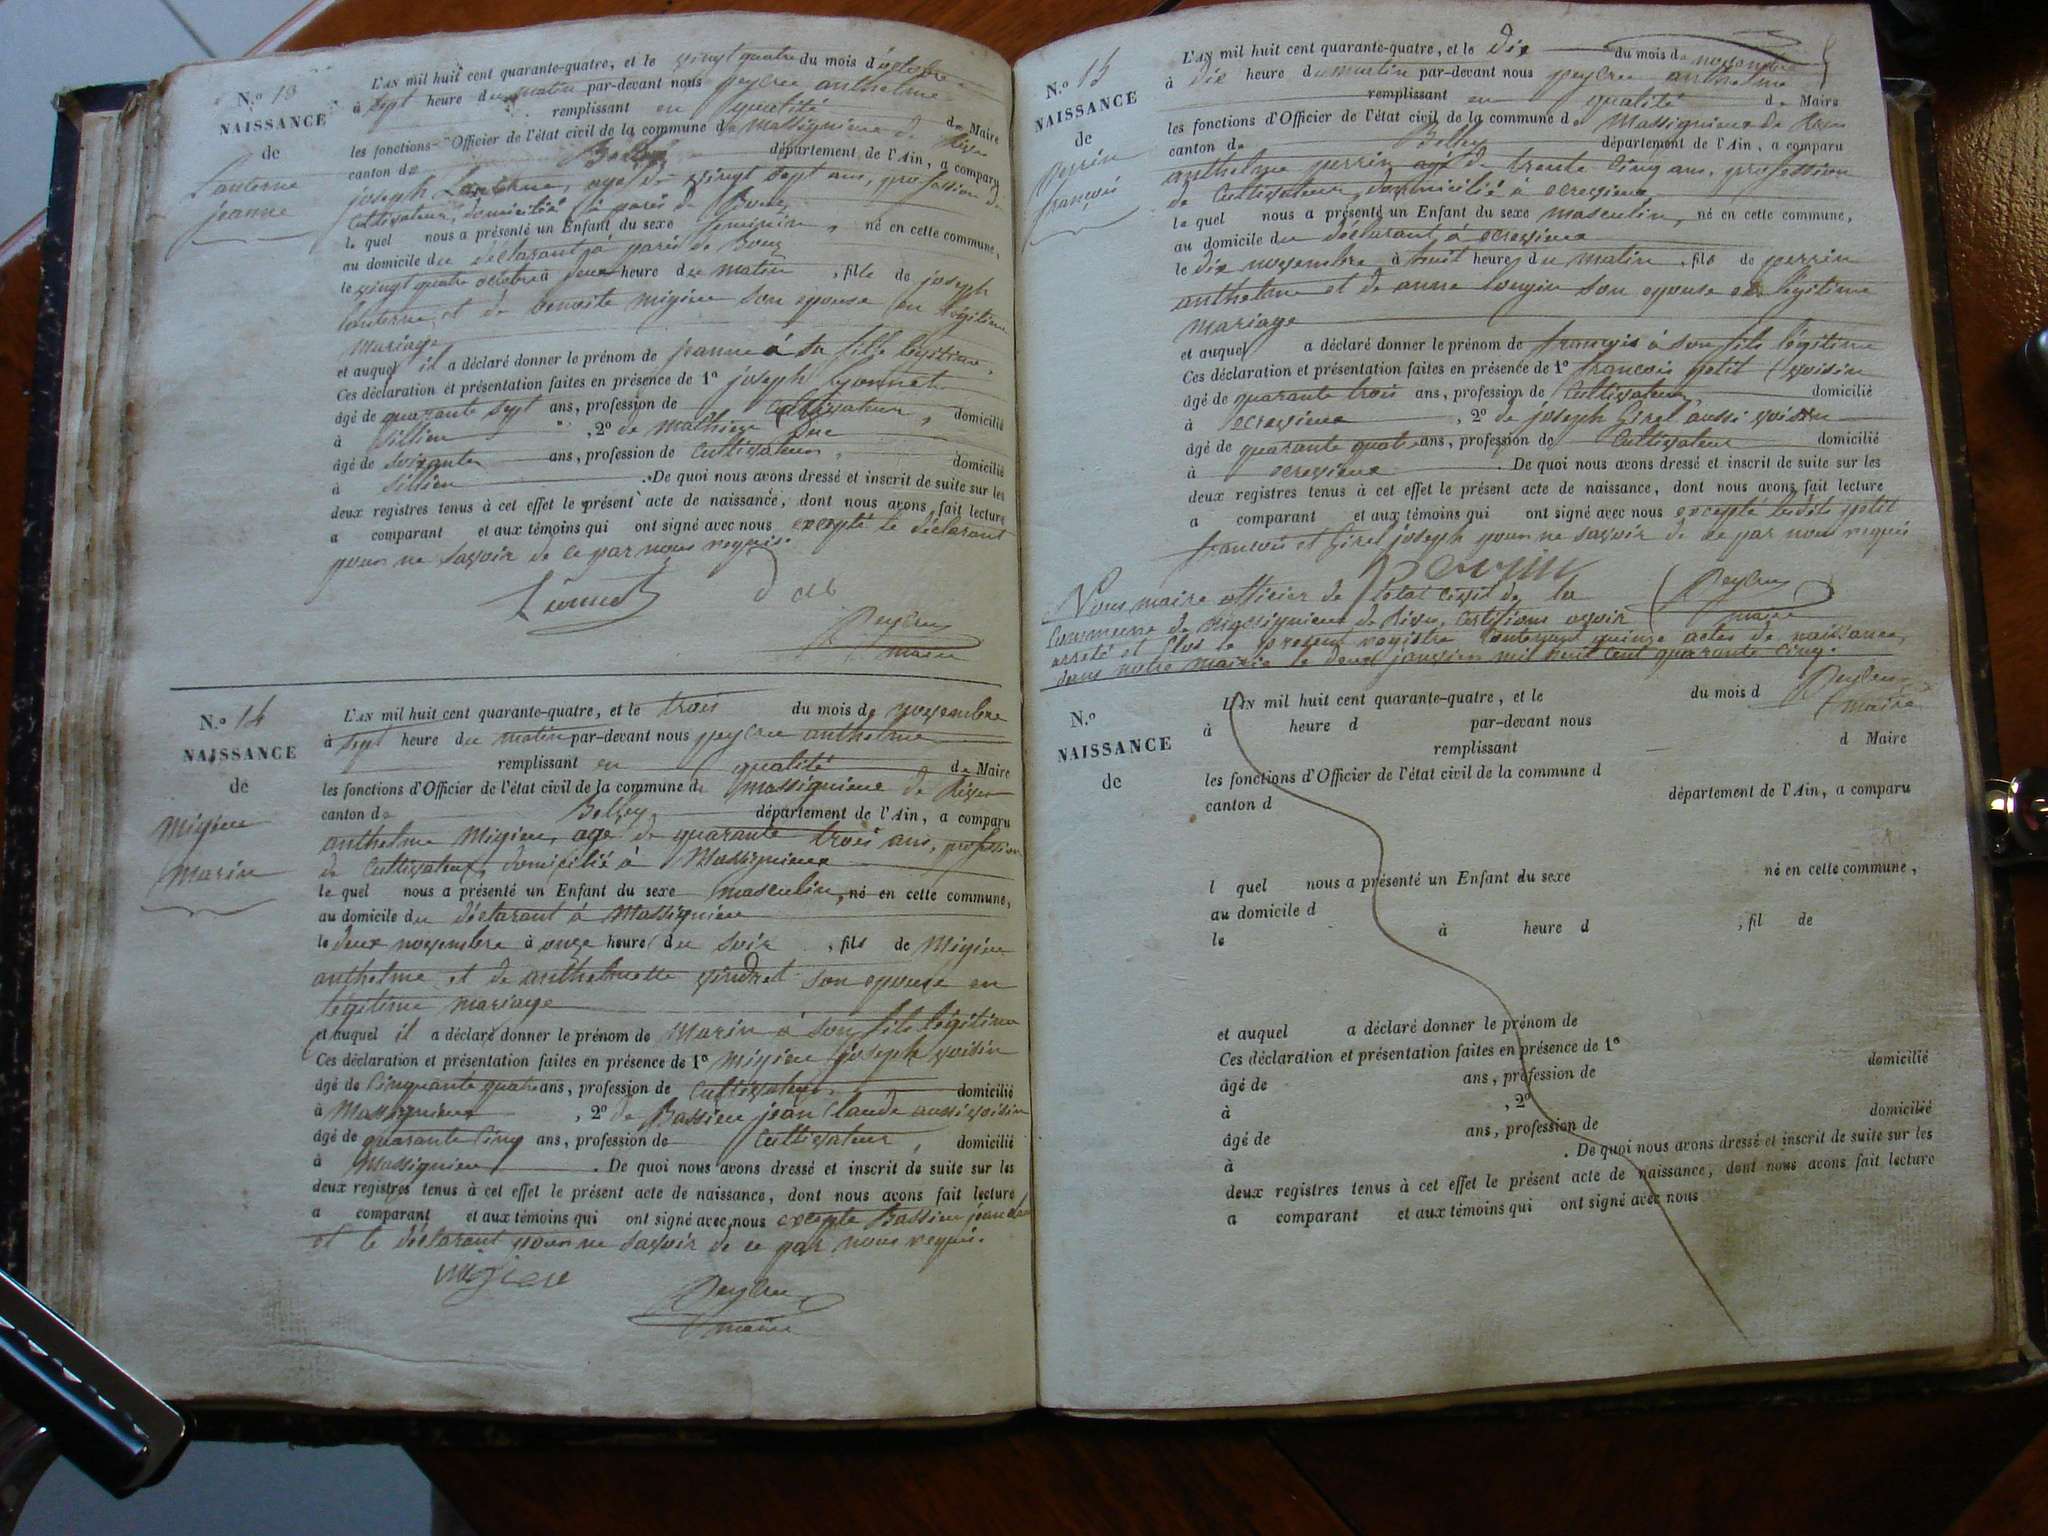 N.o 13
NAISSANCE
de
Lanterne
jeanne
L'AN mil huit cent quarante-quatre, et le vingt quatre du mois d'octobre
à sept heure du matin par-devant nous peyleu anthelme
remplissant en qualité de Maire
les fonctions d'Officier de l'état civil de la commune de Massignieux de Rives
canton de Belley département de l'Ain, a comparu
joseph Lanterne, agé de vingt sept ans, profession de
Cultivateur, domicilié à parés de
le quel nous a présenté un Enfant du sexe feminin, né en cette commune,
au domicile du déclarant à parés de
le vingt quatre octobre à deux heure du matin, fille de joseph
lanterne et de benoite migieu son epouse en légitime
mariage
et auquel il a déclaré donner le prénom de jeanne à sa fille légitime,
Ces déclaration et présentation faites en présence de 1o joseph
âgé de quarante sept ans, profession de Cultivateur, domicilié
à sillieu, 2o de Mathieu
âgé de soixante ans, profession de Cultivateur, domicilié
à sillieu. De quoi nous avons dressé et inscrit de suite sur les
deux registres tenus à cet effet le présent acte de naissance, dont nous avons fait lecture
a comparant et aux témoins qui ont signé avec nous excepté le déclarant
pour ne savoir de ce par nous requis.
Peyleu
maire
N.o 14
NAISSANCE
de
Migieu
Marin
L'AN mil huit cent quarante-quatre, et le trois du mois de novembre
à sept heure du matin par-devant nous peyleu anthelme
remplissant en qualité de Maire
les fonctions d'Officier de l'état civil de la commune de Massignieux de Rives
canton de Belley département de l'Ain, a comparu
anthelme Migieu, agé de quarante trois ans, profession
de Cultivateur, domicilié à Massignieux
le quel nous a présenté un Enfant du sexe masculin, né en cette commune,
au domicile du déclarant à Massignieu
le deux novembre à onze heure du soir, fils de Migieu
anthelme et de anthelmette vindret son epouse en
légitime mariage
et auquel il a déclaré donner le prénom de Marin à son fils légitime
Ces déclaration et présentation faites en présence de 1o Migieu joseph voisin
âgé de Cinquante quatre ans, profession de Cultivateur, domicilié
à Massignieux, 2o de Bassieu jean Claude aussi voisin
âgé de quarante Cinq ans, profession de Cultivateur, domicilié
à Massignieu. De quoi nous avons dressé et inscrit de suite sur les
deux registres tenus à cet effet le présent acte de naissance, dont nous avons fait lecture
a comparant et aux témoins qui ont signé avec nous excepte Bassieu jean
et le déclarant pour ne savoir de ce par nous requis.
migieu
Peyleu
maire
N.o 15
NAISSANCE
de
perrin
françois
L'AN mil huit cent quarante-quatre, et le dix du mois de novembre
à dix heure du matin par-devant nous peyleu anthelme
remplissant en qualité de Maire
les fonctions d'Officier de l'état civil de la commune de Massignieux de Rives
canton de Belley département de l'Ain, a comparu
anthelme perrin agé de trente Cinq ans, profession
de Cultivateur, domicilié à ecressieux
le quel nous a présenté un Enfant du sexe masculin, né en cette commune,
au domicile du déclarant à ecressieux
le dix novembre à huit heure du matin, fils de perrin
anthelme et de anne son epouse en légitime
mariage
et auquel a déclaré donner le prénom de françois à son fils légitime
Ces déclaration et présentation faites en présence de 1o françois petit voisin
âgé de quarante trois ans, profession de Cultivateur, domicilié
à ecressieux, 2o de joseph Girel aussi voisin
âgé de quarante quatre ans, profession de Cultivateur domicilié
à ecressieux. De quoi nous avons dressé et inscrit de suite sur les
deux registres tenus à cet effet le présent acte de naissance, dont nous avons fait lecture
a comparant et aux témoins qui ont signé avec nous excepté lesdits petit
françois et Girel joseph pour ne savoir de ce par nous requis
Perrin
Peyleu
maire
Nous maire officier de l'état civil de la
Commune de Massignieux de Rives, Certifions avoir
arrêté et Clos le présent registre Contenant quinze actes de naissance,
dans notre mairie le deux janvier mil huit cent quarante Cinq.
Peyleu
maire
N.o
NAISSANCE
de
L'AN mil huit cent quarante-quatre, et le du mois d
à heure d par-devant nous
remplissant d Maire
les fonctions d'Officier de l'état civil de la commune d
canton d département de l'Ain, a comparu
l quel nous a présenté un Enfant du sexe né en cette commune,
au domicile d
le à heure d , fil de
et auquel a déclaré donner le prénom de
Ces déclaration et présentation faites en présence de 1o
âgé de ans, profession de domicilié
à , 2o
âgé de ans, profession de domicilié
à . De quoi nous avons dressé et inscrit de suite sur les
deux registres tenus à cet effet le présent acte de naissance, dont nous avons fait lecture
a comparant et aux témoins qui ont signé avec nous